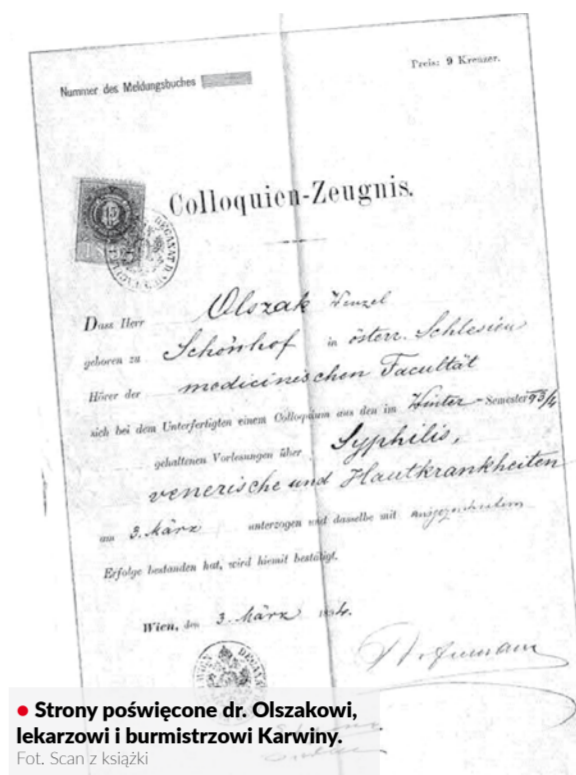 Nummer des Meldungsbuches
Preis: 9 Kreuzer.
15
Colloquien-Zeugnis.
Dass Herr Olszak Wenzel
geboren zu Schönhof in österr. Schlesien
Hörer der medicinischen Facultät
sich bei dem Unterfertigten einem Colloquium aus den im Winter-Semester 93/4
gehaltenen Vorlesungen über Syphilis,
venerische und Hautkrankheiten
am 3. März unterzogen und dasselbe mit ausgezeichnetem
Erfolge bestanden hat, wird hiemit bestätigt.
Wien, den 3. März
• Strony poświęcone dr. Olszakowi,
lekarzowi i burmistrzowi Karwiny.
Fot. Scan z książki